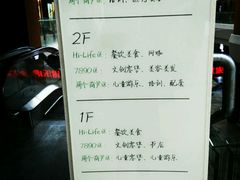 2F
Hi-Life区: 餐饮美食、网咖
7890区: 文创零售、美容美发
儿童游乐、培训、配套
1F
Hi-Life区: 餐饮美食
7890区: 文创零售、书店
儿童零售、儿童游乐